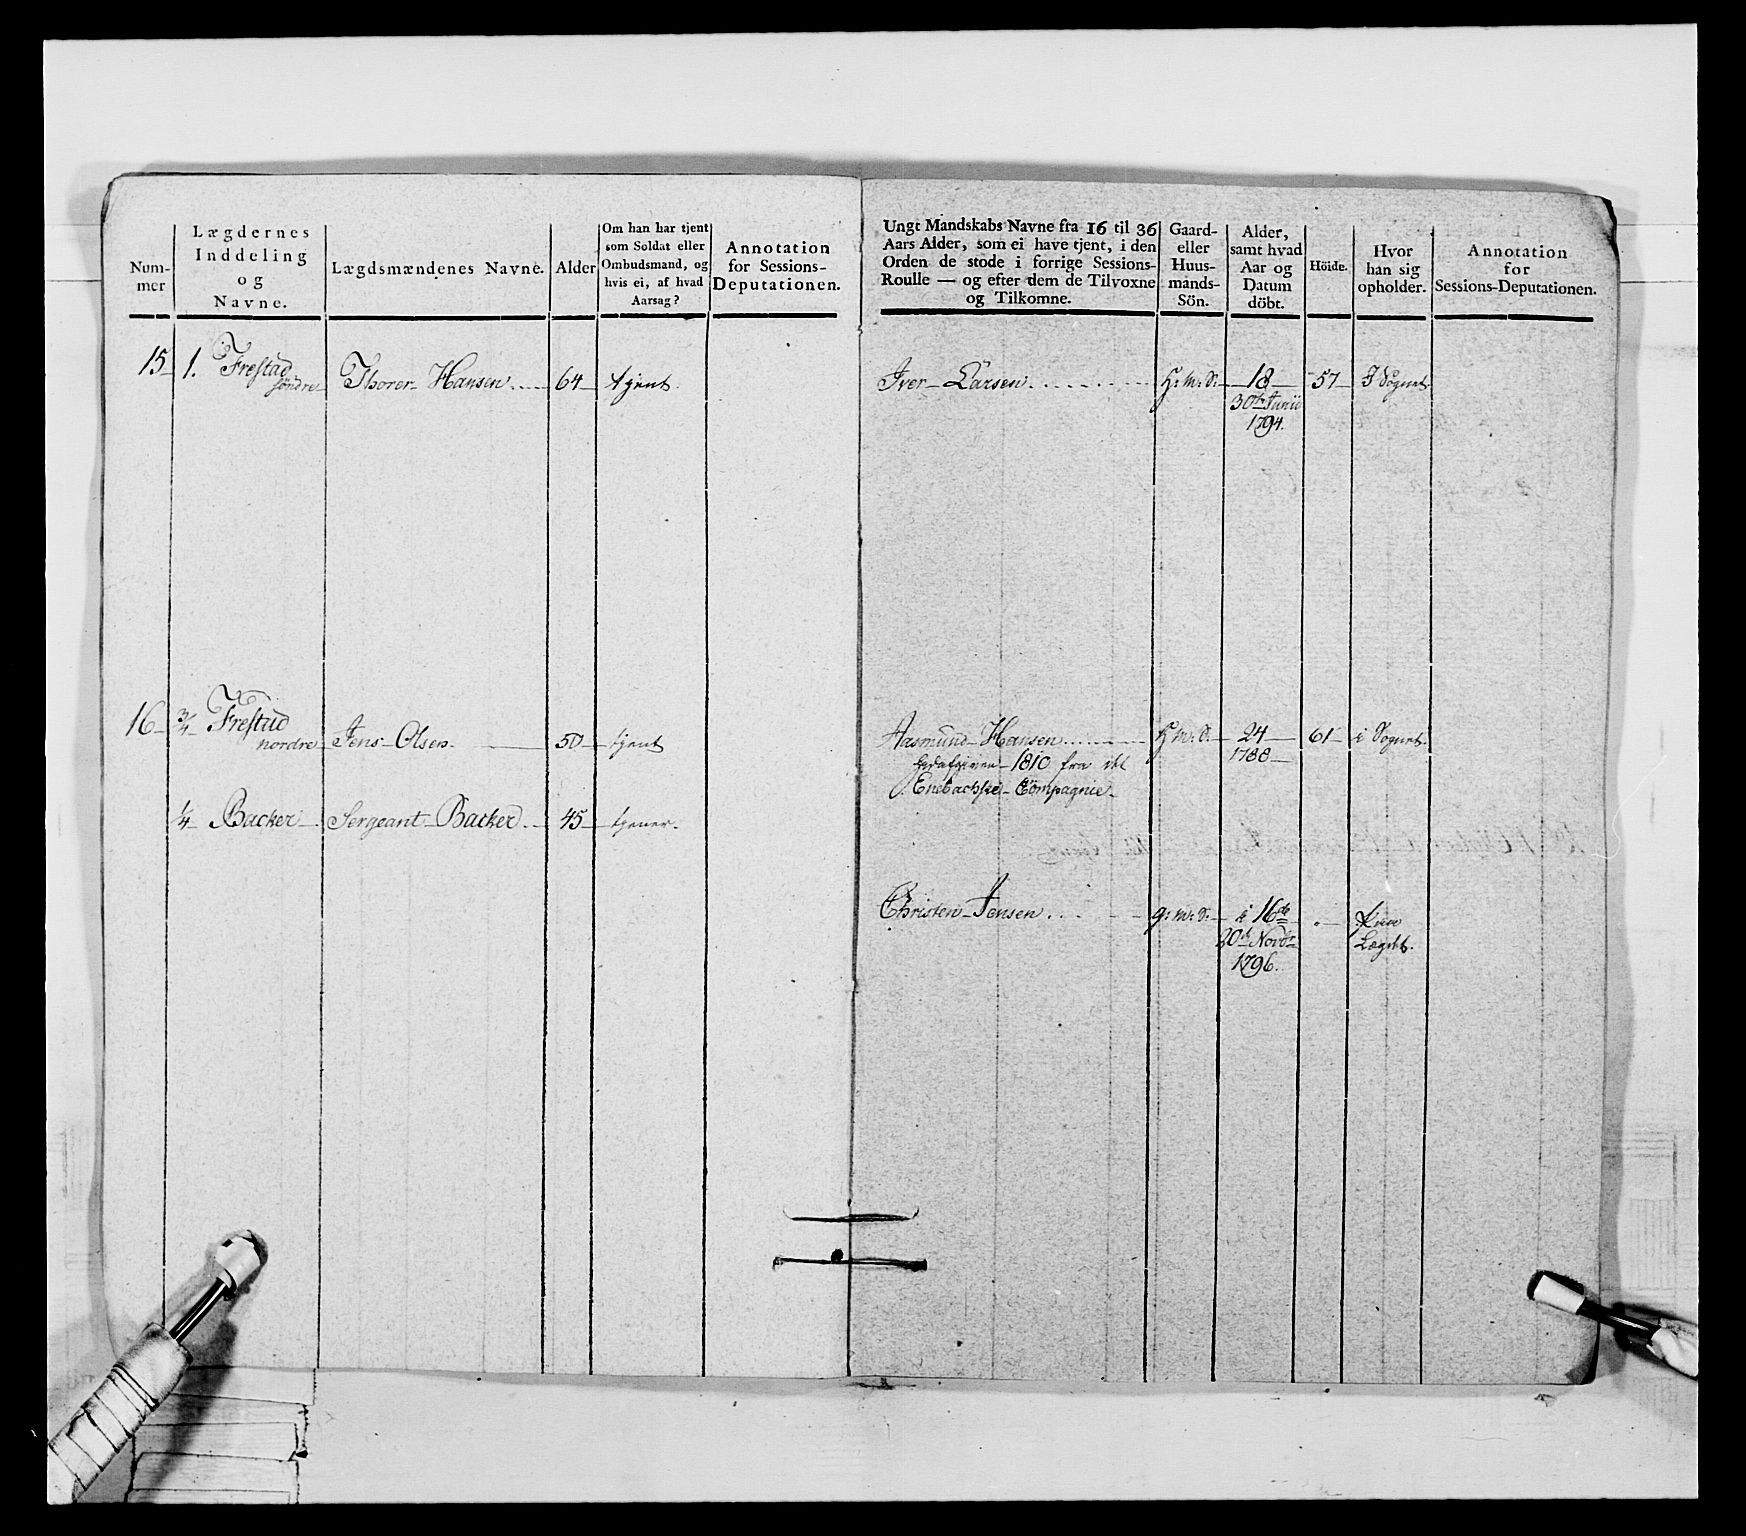 Num-
mer
Lægdernes
Inddeling
og
Navne.
Lægdsmændenes Navne.
Alder
Om han har tjent
som Soldat eller
Ombudsmand, og
hvis ei, af hvad
Aarsag?
Annotation
for Sessions-
Deputationen.
15 1. Frestad
söndre Thorer Hansen 64 tjent.
16 3/4 Frestad
nordre Jens Olsen 50 tjent
1/4 Backer Sergeant Backer 45 tjener.
Ungt Mandskabs Navne fra 16 til 36
Aars Alder, som ei have tjent, i den
Orden de stode i forrige Sessions-
Roulle — og efter dem de Tilvoxne
og Tilkomne.
Gaard-
eller
Huus-
mands-
Sön.
Alder,
samt hvad
Aar og
Datum
döbt.
Höide.
Hvor
han sig
opholder.
Annotation
for
Sessions-Deputationen.
Iver Larsen H: M: S: 18 57 I Sognet
30te Junii
1794.
Aasmund Hansen H: M: S: 24 61 i Sognet.
1788
1810 fra det
Enebachske Compagnie
Christen Jensen g: m: S: i 16de
20de Novbr
1796.
Lægdet.